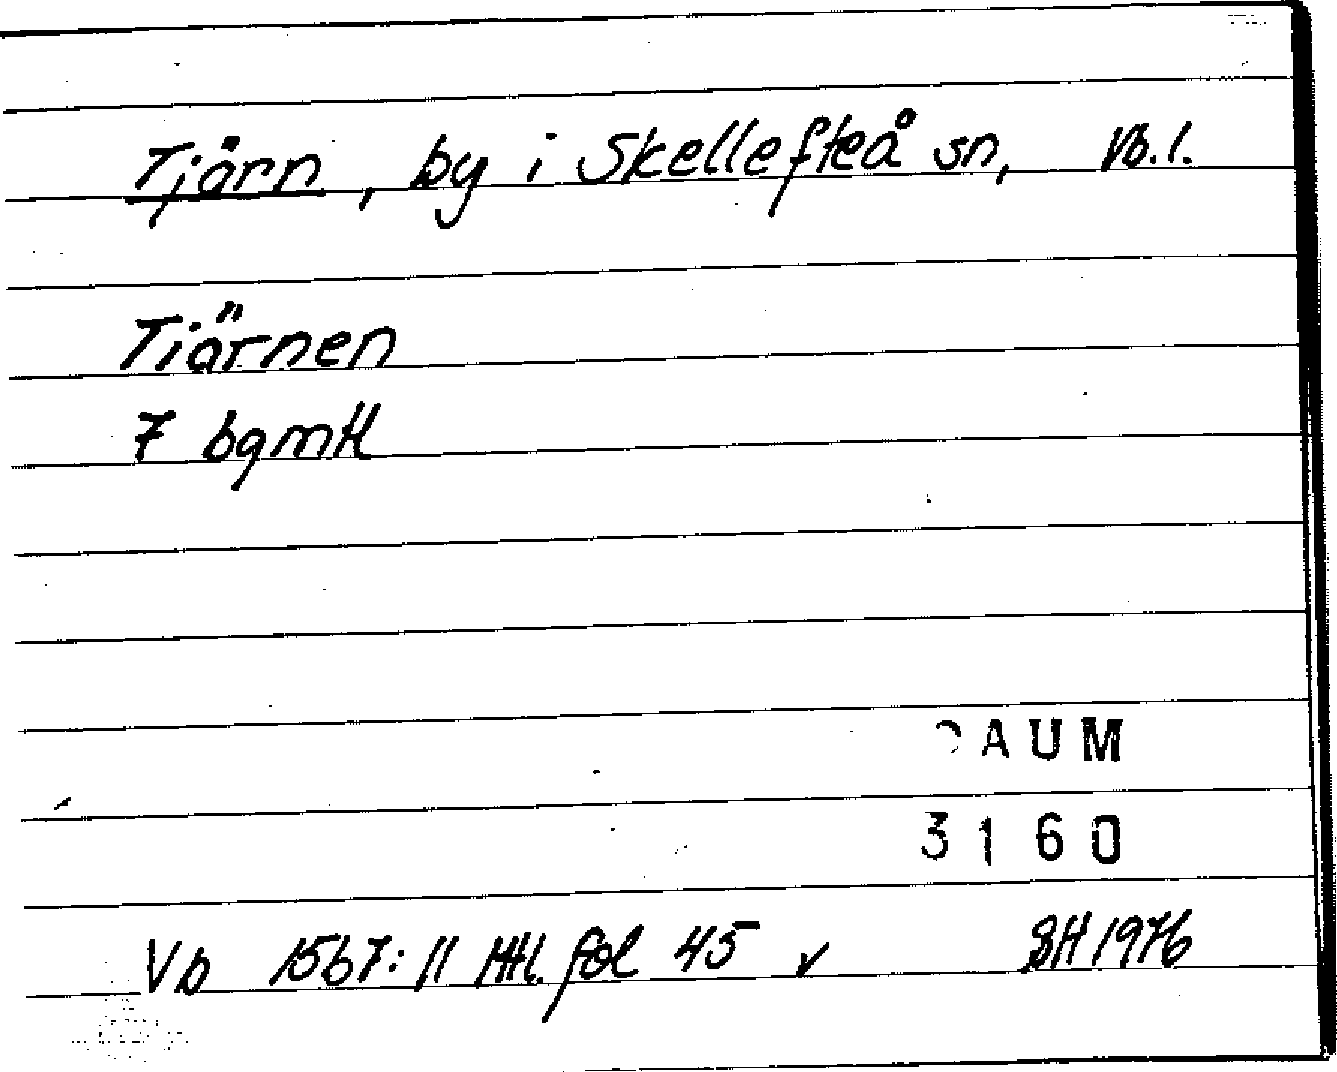 Tjärn, by i Skellefteå sn, Vb.l.
Tiärnen
7 bgmtl
DAUM
3160
Vb 1567:11 Mtl. fol 45 v SH 1976